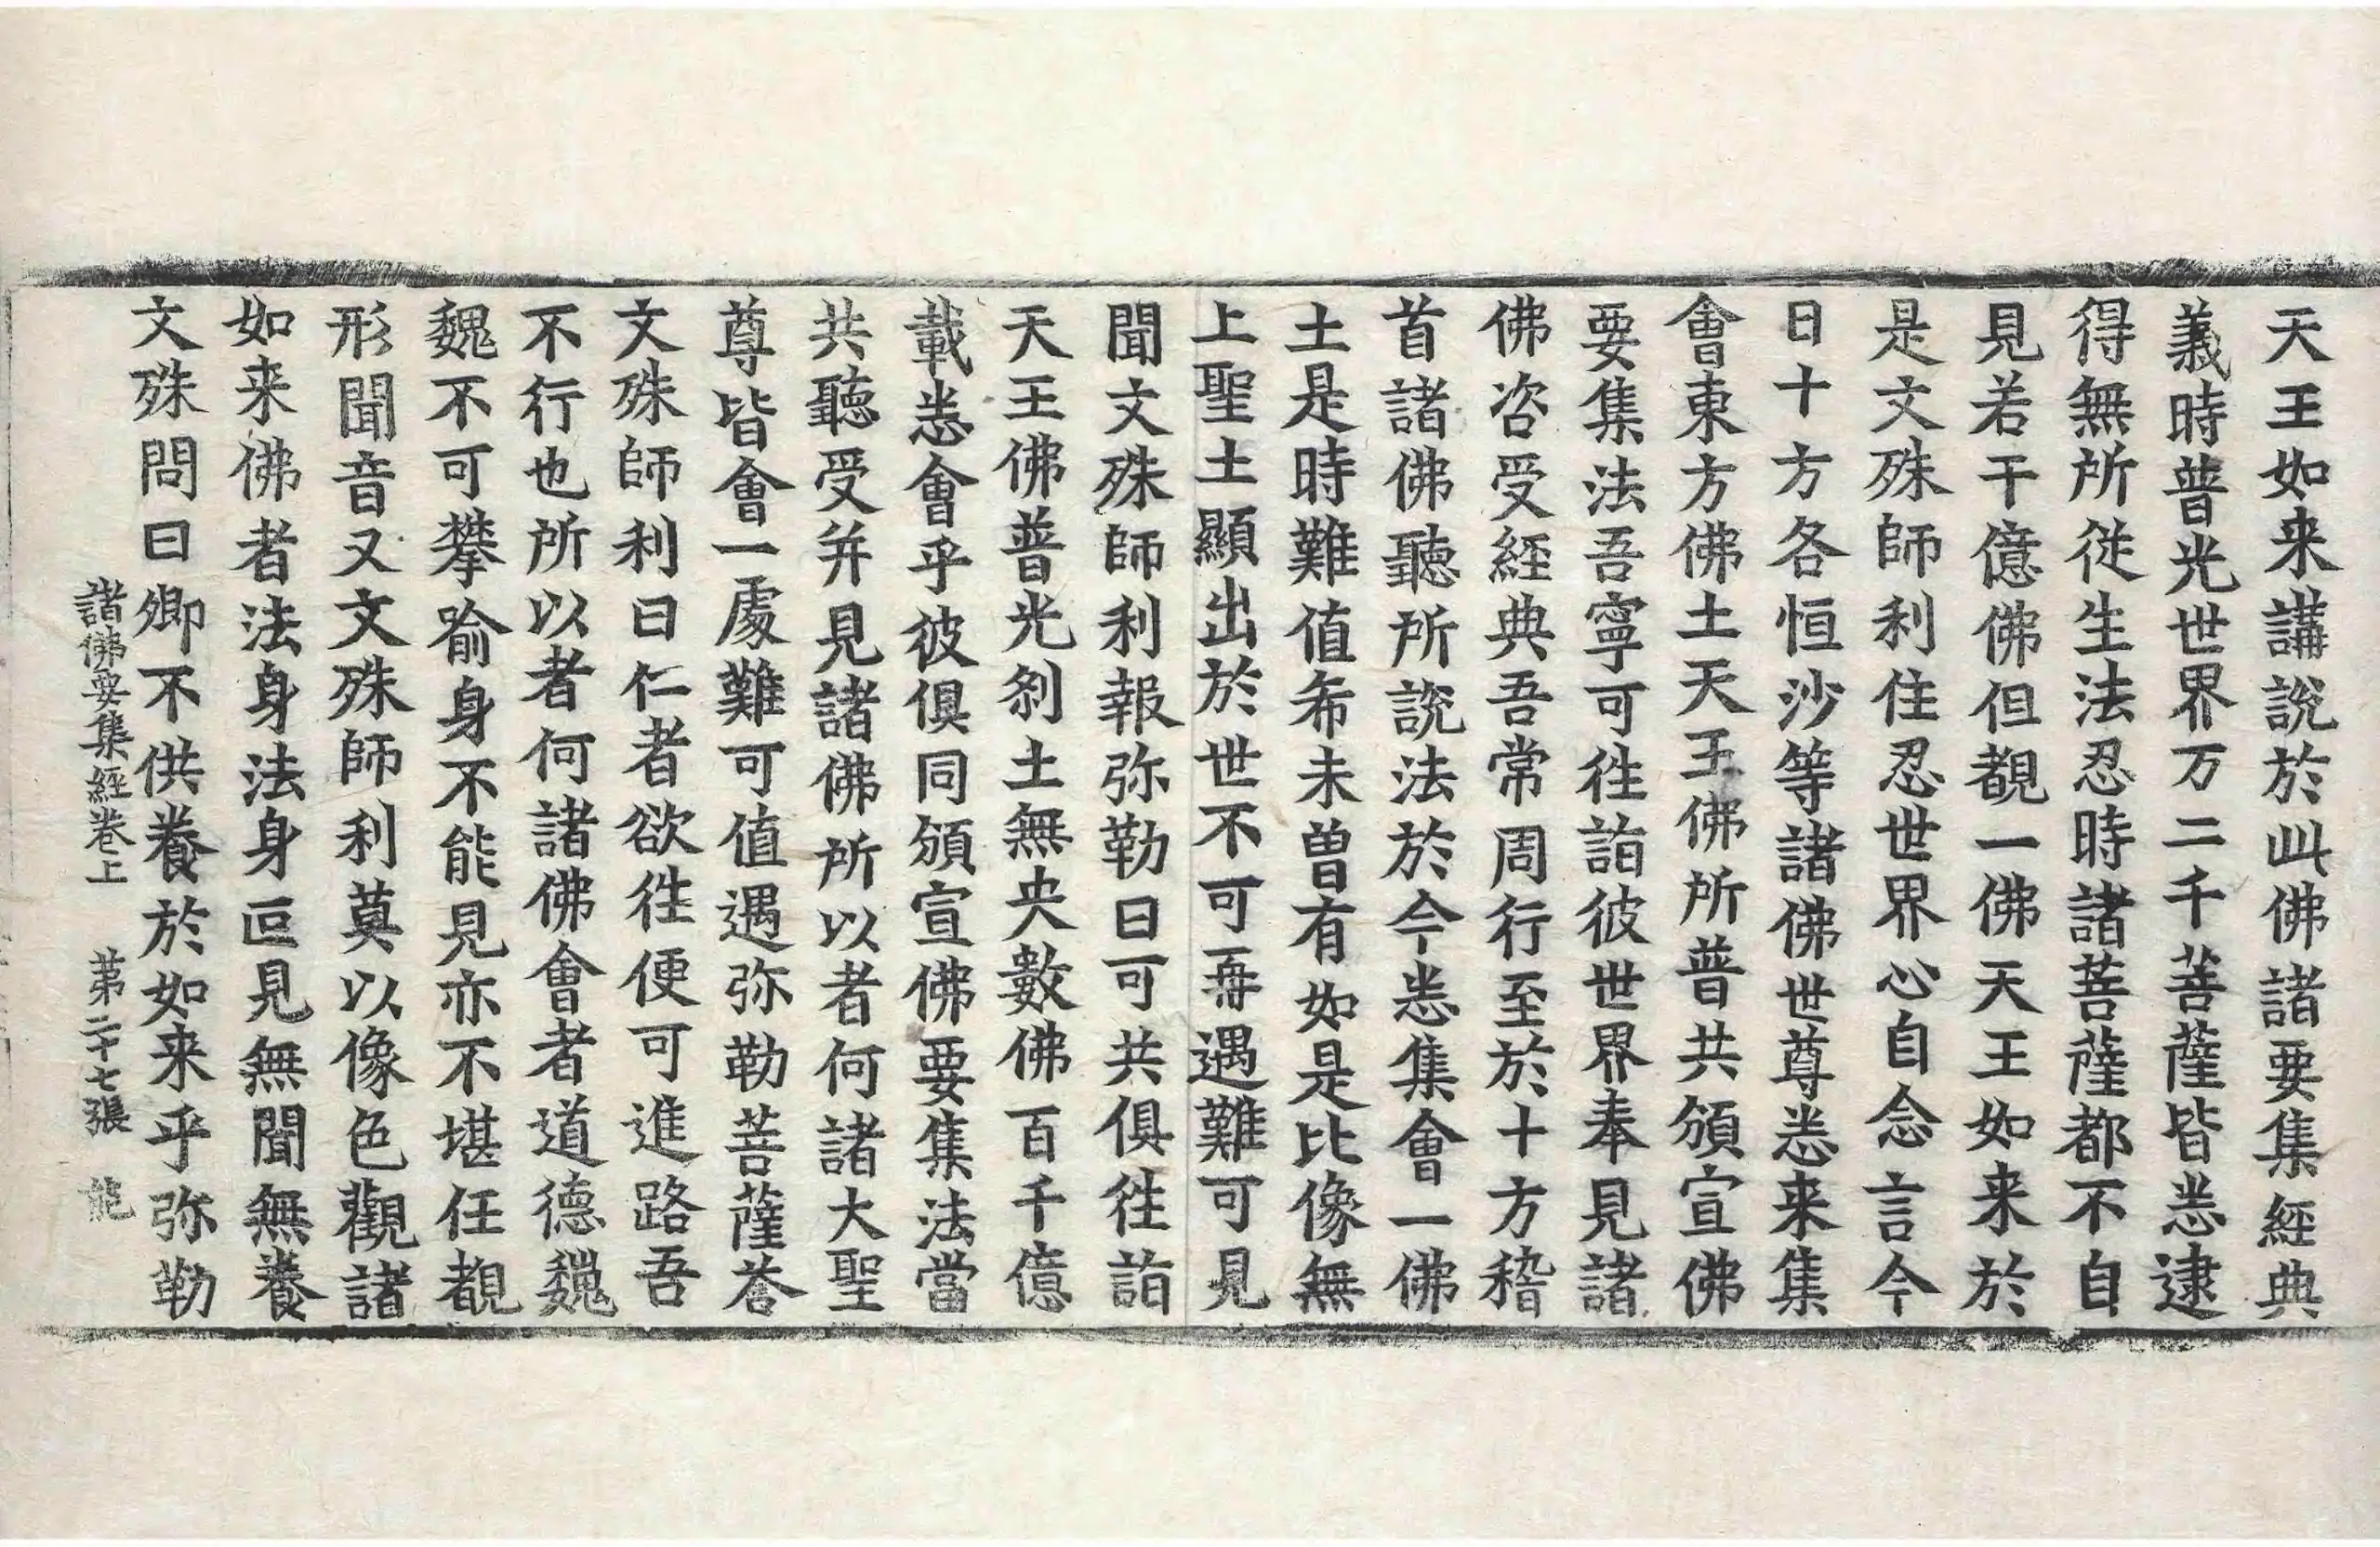 天王如来講說於此佛諸要集經典
義時普光世界万二千菩薩皆悉逮
得無所從生法忍時諸菩薩都不自
見若干億佛但覩一佛天王如来於
是文殊師利住忍世界心自念言今
日十方各恒沙等諸佛世尊悉来集
會東方佛土天王佛所普共頒宣佛
要集法吾寧可徃詣彼世界奉見諸
佛咨受經典吾常周行至於十方稽
首諸佛聽所說法於今悉集會一佛
土是時難值希未曽有如是比像無
上聖土顯出於世不可再遇難可見
聞文殊師利報弥勒曰可共俱徃詣
天王佛普光剎土無央數佛百千億
載悉會乎彼俱同頒宣佛要集法當
共聽受并見諸佛所以者何諸大聖
尊皆會一處難可值遇弥勒菩薩荅
文殊師利曰仁者欲徃便可進路吾
不行也所以者何諸佛會者道德巍
巍不可攀喻身不能見亦不堪任覩
形聞音又文殊師利莫以像色觀諸
如来佛者法身法身叵見無聞無養
文殊問曰卿不供養於如来乎弥勒
諸佛要集經卷上 第二十七張 能